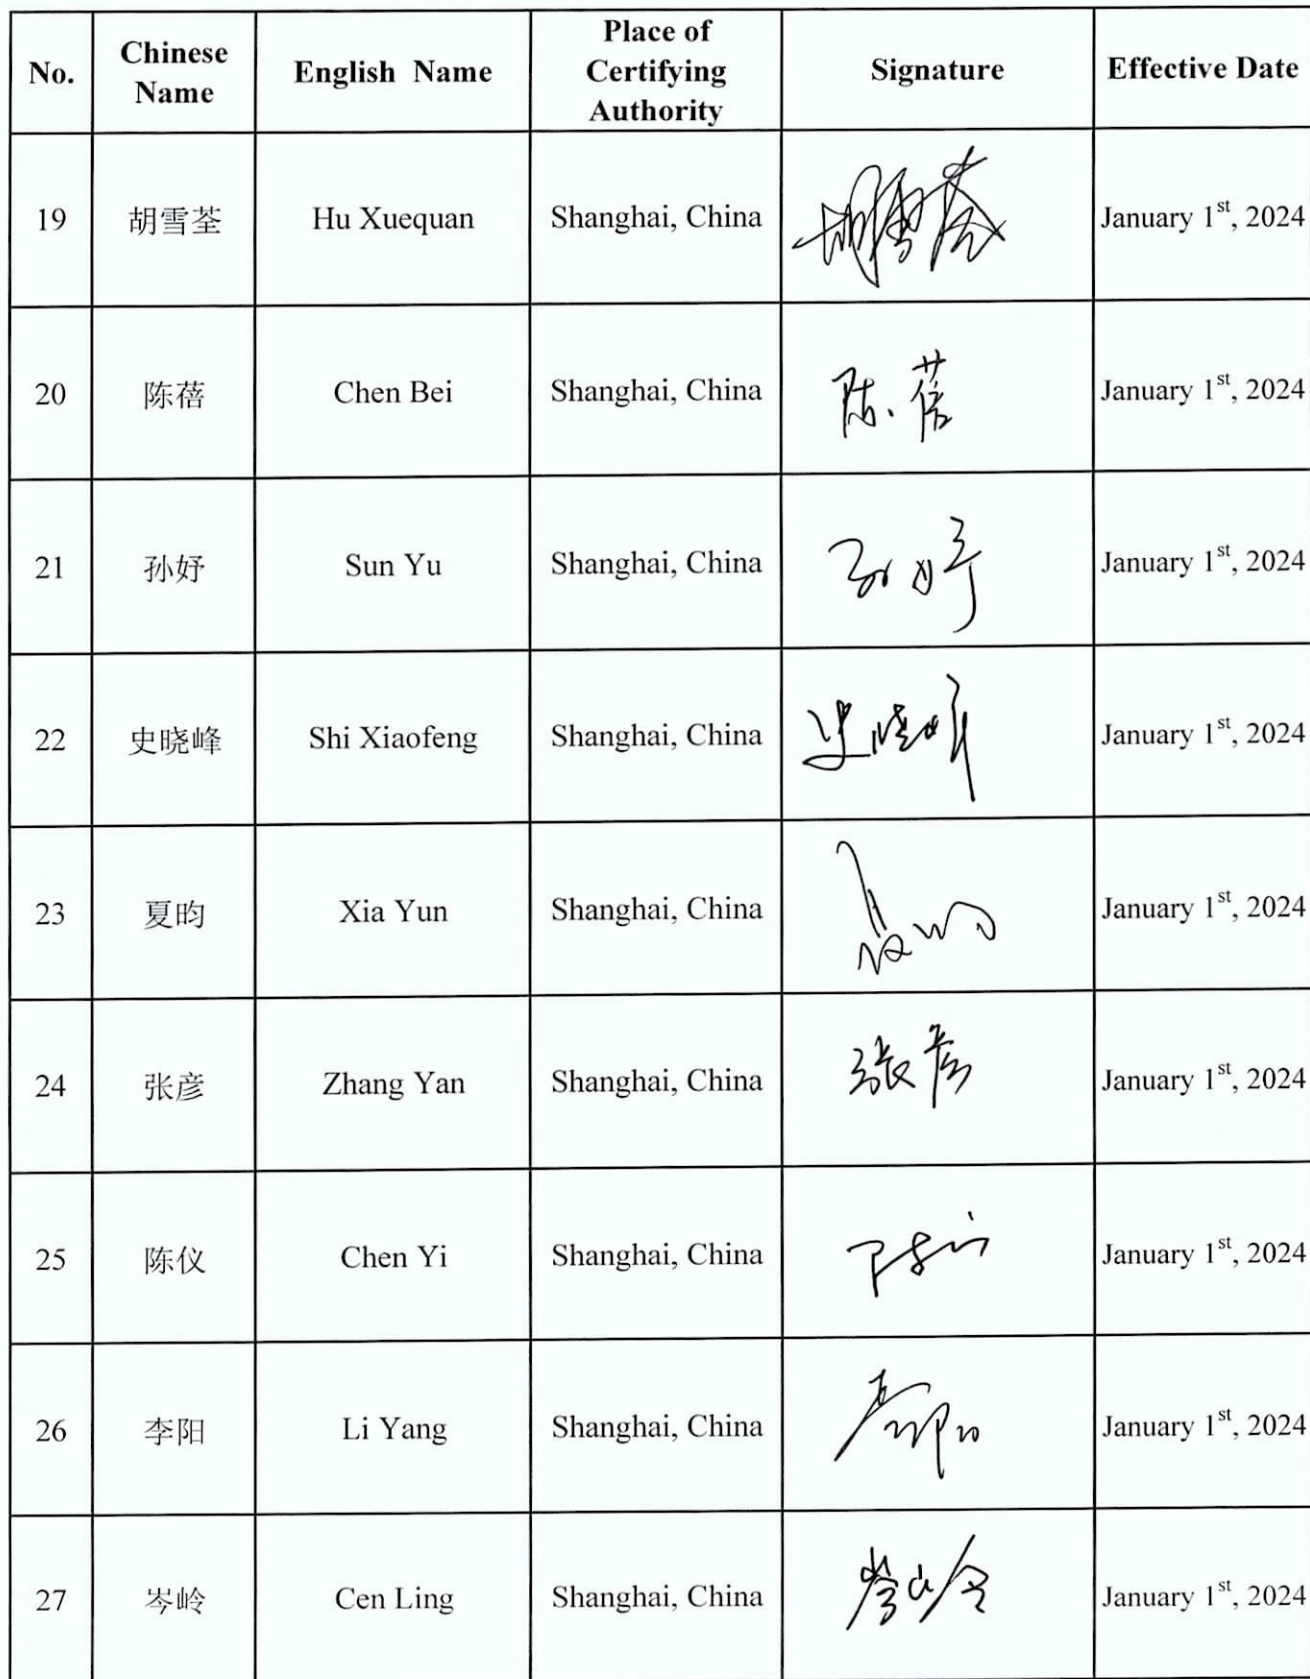 No. Chinese Name English Name Place of Certifying Authority Signature Effective Date
19 胡雪荃 Hu Xuequan Shanghai, China 胡雪荃 January 1st, 2024
20 陈蓓 Chen Bei Shanghai, China 陈蓓 January 1st, 2024
21 孙妤 Sun Yu Shanghai, China 孙妤 January 1st, 2024
22 史晓峰 Shi Xiaofeng Shanghai, China 史晓峰 January 1st, 2024
23 夏昀 Xia Yun Shanghai, China 夏昀 January 1st, 2024
24 张彦 Zhang Yan Shanghai, China 张彦 January 1st, 2024
25 陈仪 Chen Yi Shanghai, China 陈仪 January 1st, 2024
26 李阳 Li Yang Shanghai, China 李阳 January 1st, 2024
27 岑岭 Cen Ling Shanghai, China 岑岭 January 1st, 2024